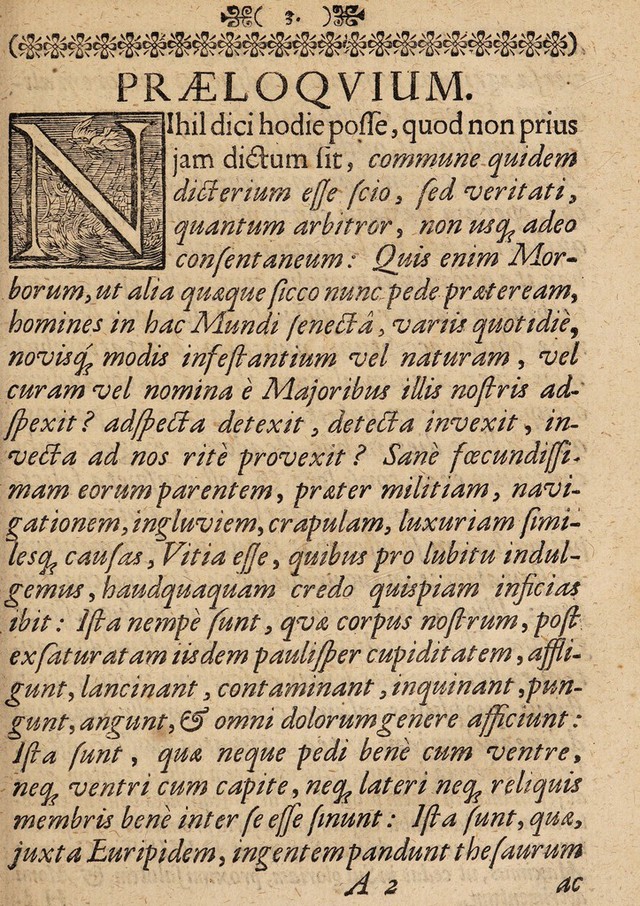 ( 3. )
PRÆLOQVIUM.
NIhil dici hodie posse, quod non prius
jam dictum sit, commune quidem
dicterium esse scio, sed veritati,
quantum arbitror, non usq; adeo
consentaneum: Quis enim Mor-
borum, ut alia quæque sicco nunc pede præteream,
homines in hac Mundi senectâ, variis quotidiè,
novisq́; modis infestantium vel naturam, vel
curam vel nomina è Majoribus illis nostris ad-
spexit? adspecta detexit, detecta invexit, in-
vecta ad nos ritè provexit? Sanè fœcundissi-
mam eorum parentem, præter militiam, navi-
gationem, ingluviem, crapulam, luxuriam simi-
lesq; causas, Vitia esse, quibus pro lubitu indul-
gemus, haudquaquam credo quispiam inficias
ibit: Ista nempè sunt, qvæ corpus nostrum, post
exsaturatam iisdem paulisper cupiditatem, affli-
gunt, lancinant, contaminant, inquinant, pun-
gunt, angunt, & omni dolorum genere afficiunt:
Ista sunt, quæ neque pedi benè cum ventre,
neq; ventri cum capite, neq; lateri neq; reliquis
membris benè inter se esse sinunt: Ista sunt, quæ,
juxta Euripidem, ingentem pandunt thesaurum
A 2 ac